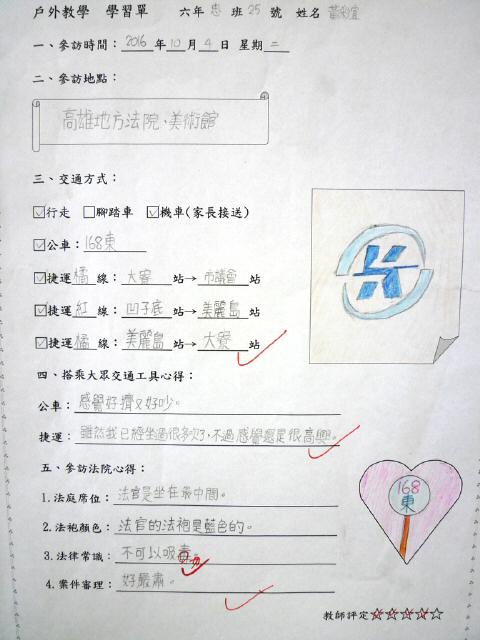 戶外教學 學習單 六年忠班25號 姓名
一、參訪時間：2016年10月4日 星期二
二、參訪地點：
高雄地方法院、美術館
三、交通方式：
☑行走 □腳踏車 ☑機車(家長接送)
☑公車：168東
☑捷運橘線：大寮站→市議會站
☑捷運紅線：凹子底站→美麗島站
☑捷運橘線：美麗島站→大寮站
四、搭乘大眾交通工具心得：
公車：感覺好擠又好吵。
捷運：雖然我已經坐過很多次了，不過感覺還是很高興。
五、參訪法院心得：
168
東
1.法庭席位：法官是坐在最中間。
2.法袍顏色：法官的法袍是藍色的。
3.法律常識：不可以吸毒。
4.案件審理：好嚴肅。
教師評定☆☆☆☆☆